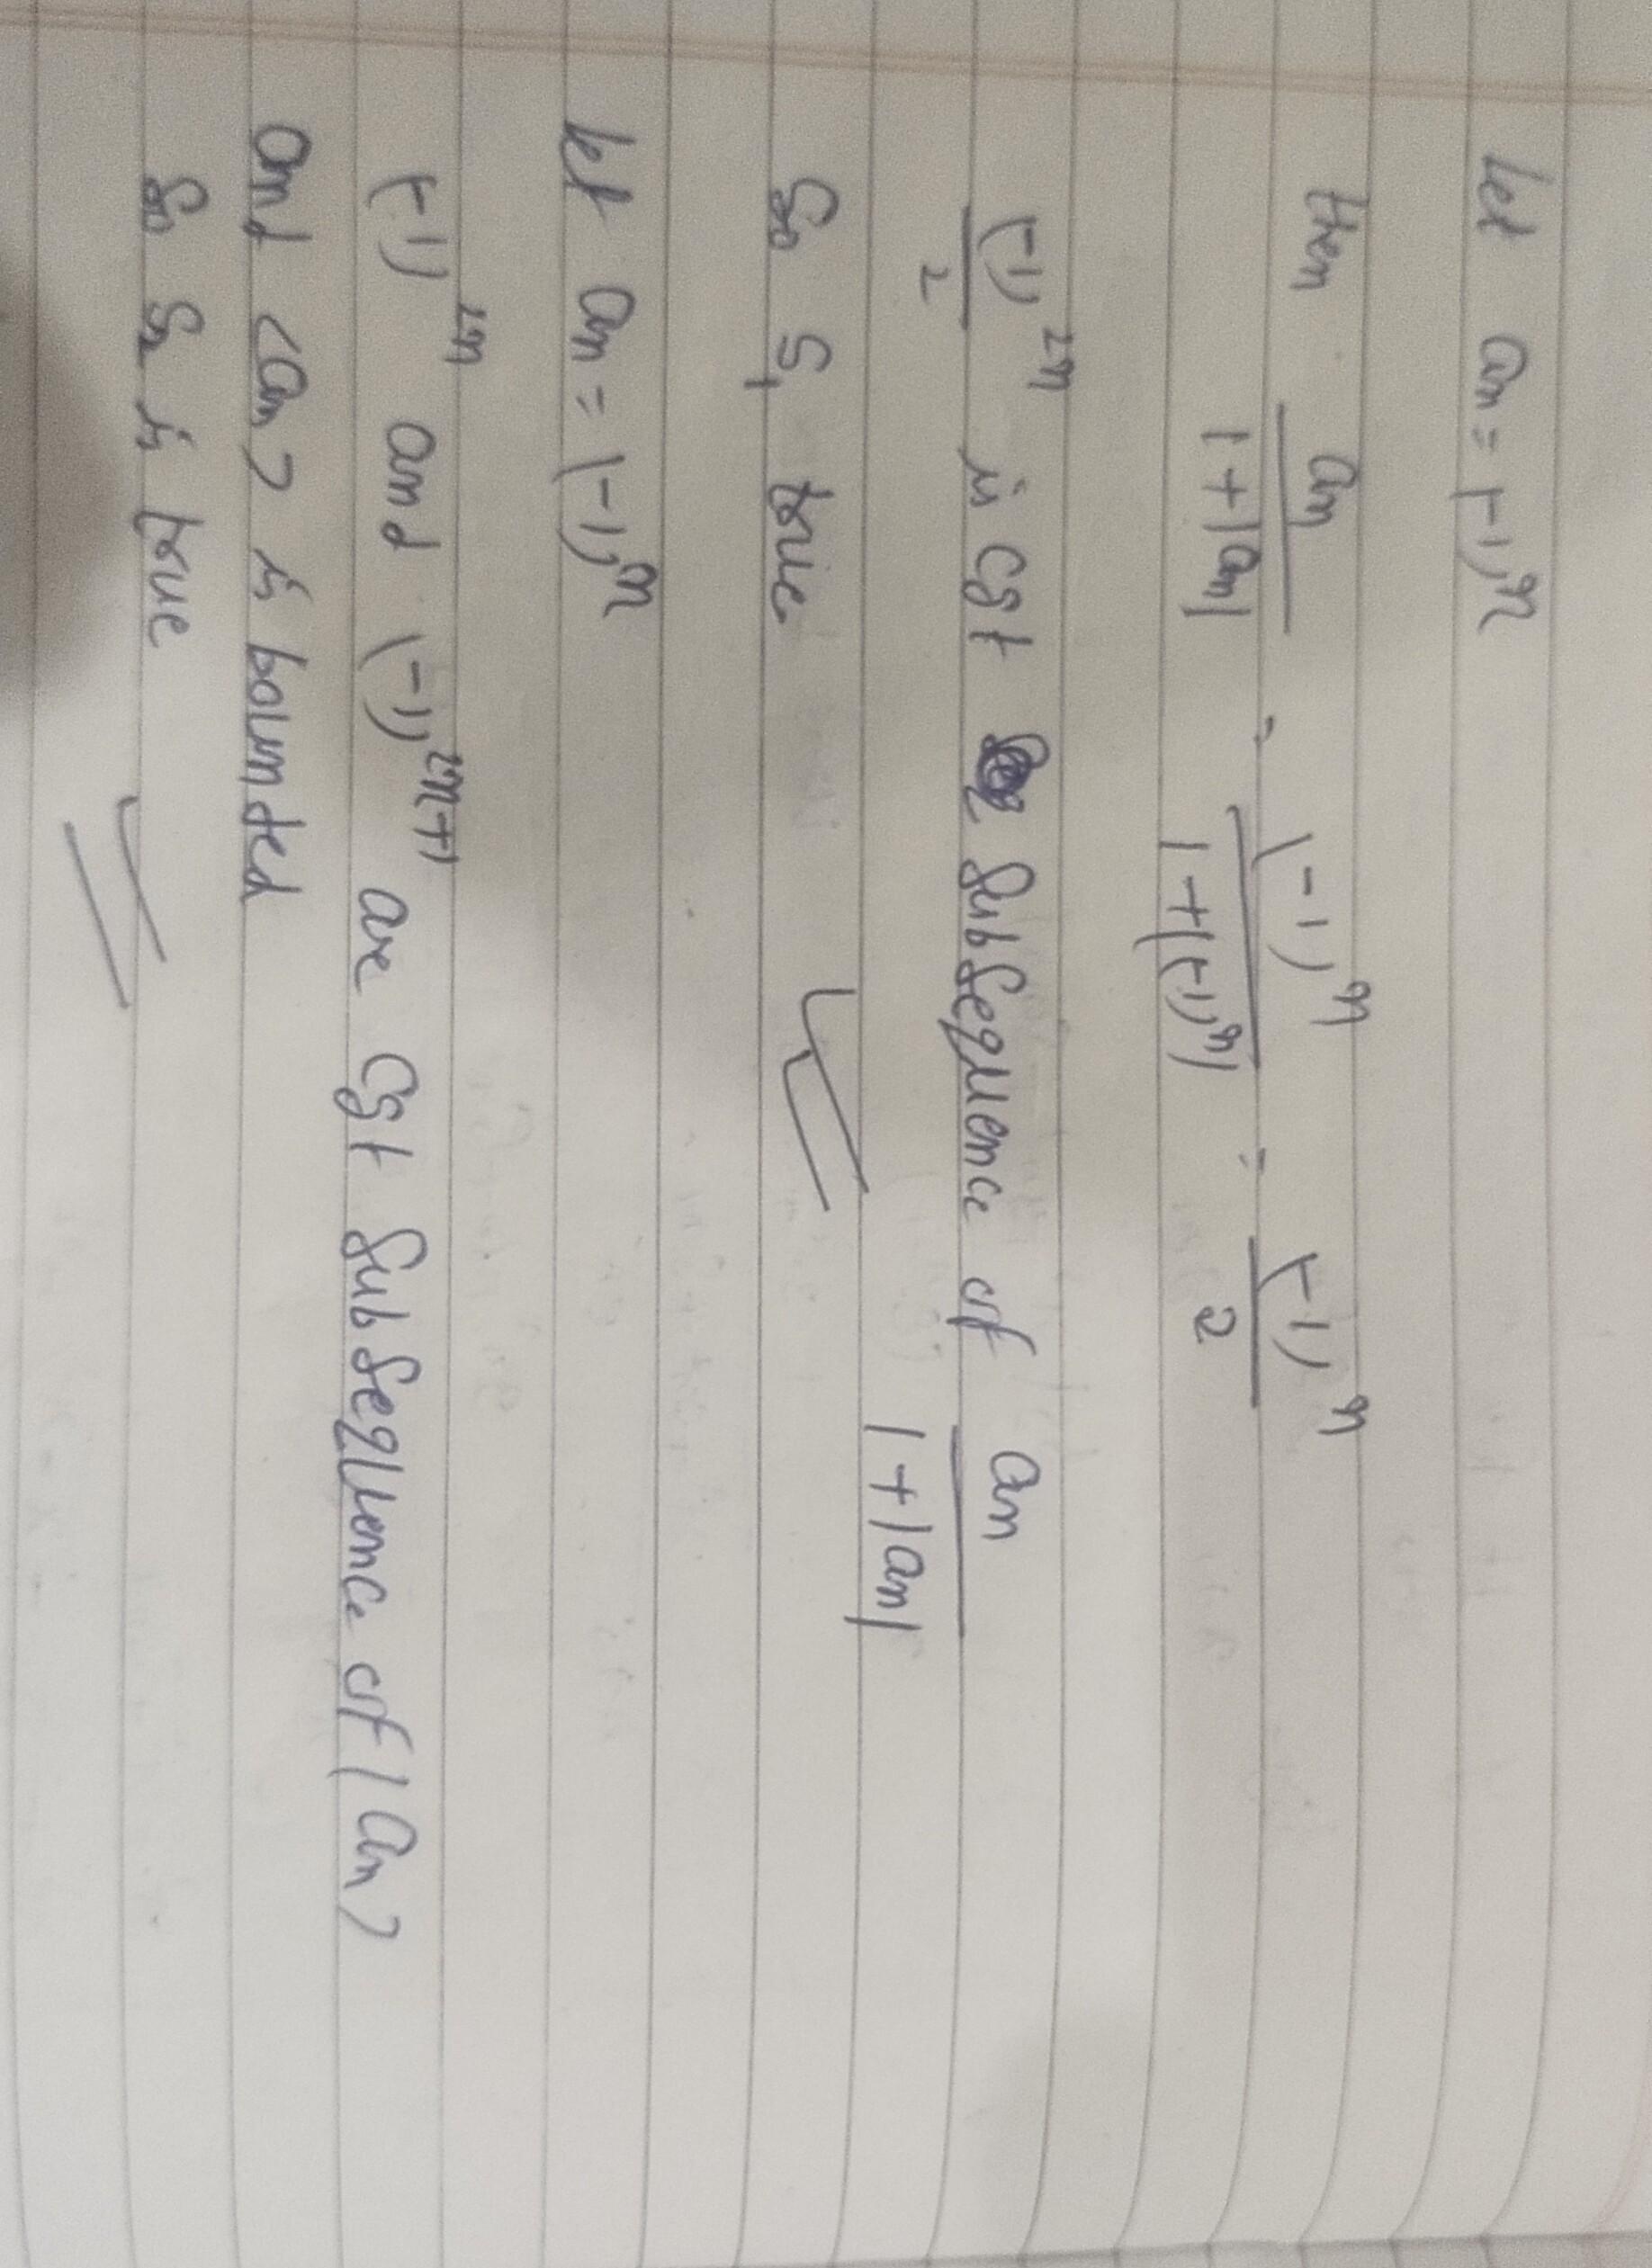 let an = (-1)^n
then an / 1+|an| = (-1)^n / 1+|(-1)^n| = (-1)^n / 2
(-1)^2n / 2 is cgt SubSequence of an / 1+|an|
So S1 true
let an = (-1)^n
(-1)^2n and (-1)^2n+1 are Cgt SubSequence of (an>
and <an> is bounded
So S2 is true